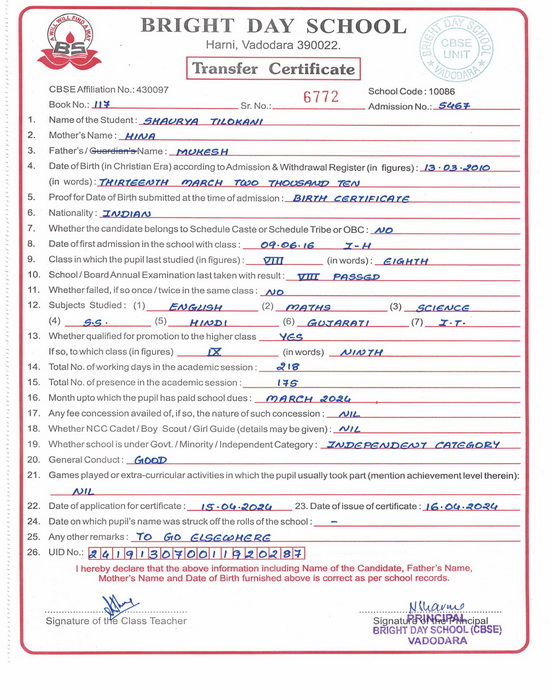 A WILL WILL FIND A WAY
BS
BRIGHT DAY SCHOOL
Harni, Vadodara 390022.
Transfer Certificate
BRIGHT DAY SCHOOL
CBSE
UNIT
VADODARA
CBSE Affiliation No.: 430097 School Code : 10086
Book No.: 117 Sr. No.: 6772 Admission No.: 5467
1. Name of the Student : SHAURYA TILOKANI
2. Mother's Name : HINA
3. Father's / Guardian's Name : MUKESH
4. Date of Birth (in Christian Era) according to Admission & Withdrawal Register (in figures) : 13-03-2010
(in words) : THIRTEENTH MARCH TWO THOUSAND TEN
5. Proof for Date of Birth submitted at the time of admission : BIRTH CERTIFICATE
6. Nationality : INDIAN
7. Whether the candidate belongs to Schedule Caste or Schedule Tribe or OBC : NO
8. Date of first admission in the school with class : 09-06-16 I-H
9. Class in which the pupil last studied (in figures) : VIII (in words) : EIGHTH
10. School / Board Annual Examination last taken with result : VIII PASSED
11. Whether failed, if so once / twice in the same class : NO
12. Subjects Studied : (1) ENGLISH (2) MATHS (3) SCIENCE
(4) S.S. (5) HINDI (6) GUJARATI (7) I.T.
13. Whether qualified for promotion to the higher class YES
If so, to which class (in figures) IX (in words) NINTH
14. Total No. of working days in the academic session : 218
15. Total No. of presence in the academic session : 175
16. Month upto which the pupil has paid school dues : MARCH 2024
17. Any fee concession availed of, if so, the nature of such concession : NIL
18. Whether NCC Cadet / Boy Scout / Girl Guide (details may be given) : NIL
19. Whether school is under Govt. / Minority / Independent Category : INDEPENDENT CATEGORY
20. General Conduct : GOOD
21. Games played or extra-curricular activities in which the pupil usually took part (mention achievement level therein) :
NIL
22. Date of application for certificate : 15-04-2024 23. Date of issue of certificate : 16-04-2024
24. Date on which pupil's name was struck off the rolls of the school : -
25. Any other remarks : TO GO ELSEWHERE
26. UID No.: 241913070011920287
I hereby declare that the above information including Name of the Candidate, Father's Name,
Mother's Name and Date of Birth furnished above is correct as per school records.
Signature of the Class Teacher Signature of the Principal
PRINCIPAL
BRIGHT DAY SCHOOL (CBSE)
VADODARA